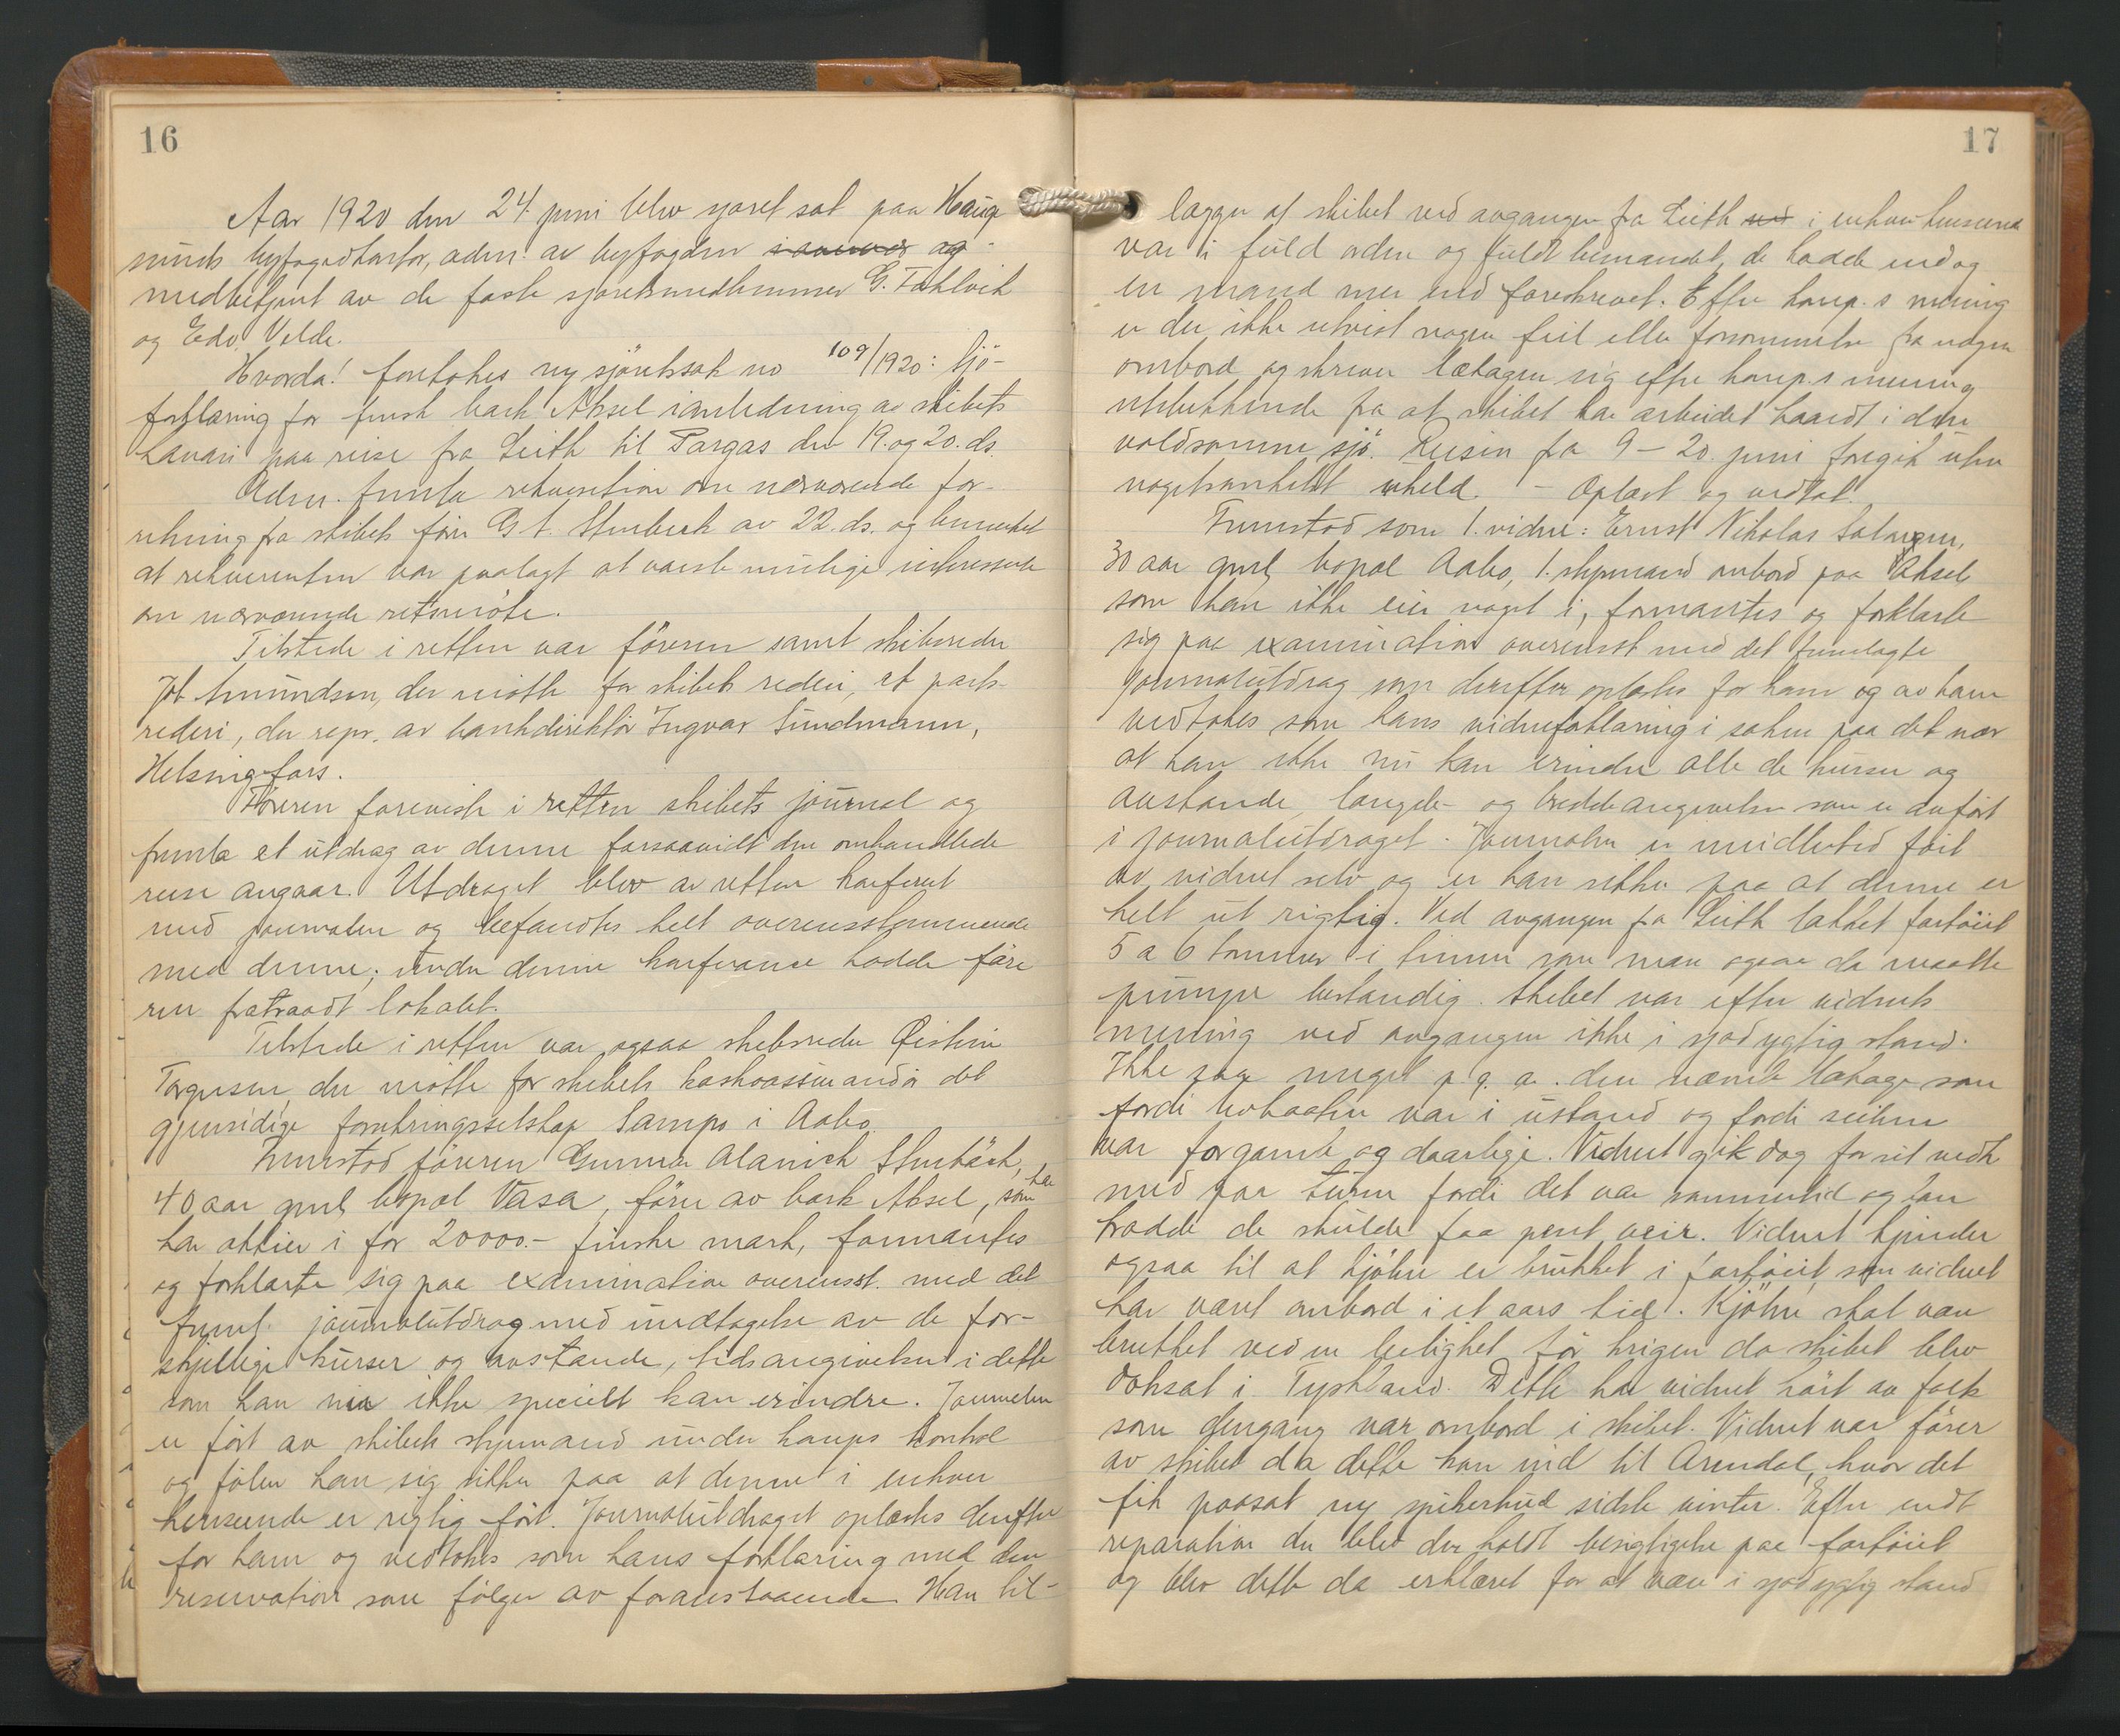 16
Aar 1920 den 24. juni blev sjøret sat paa Hauge
sunds byfogedkontor, adm. av byfogden i nærvær og
medbetjent av de faste sjøretsmedlemmer G. Fahlvik
og Edv. Velde.
Hvorda! foretokes ny sjöretssak no 109/1920: Sjö-
forklaring for finsk bark Aksel i anledning av skibets
havari paa reise fra Leith til Pargas den 19. og 20. ds.
Adm. fremla rekvisition om nærværende for-
retning fra skibets förer G A. Stenbäck av 22. ds. og bemerket
at rekvirenten var paalagt at varsle mulige interesserte
om nærværende retsmöte.
Tilstede i retten var föreren samt skibsreder
Job Amundsen, der mötte for skibets rederi, et parts-
rederi, der repr. av bankdirektör Ingvar Sundmann,
Helsingfors.
Föreren foreviste i retten skibets journal og
fremla et utdrag av denne forsaavidt den omhandlede
reise angaar. Utdraget blev av retten konferert
med journalen og befandtes helt overensstemmende
med denne; under denne konferance hadde före
ren fratraadt lokalet.
Tilstede i retten var ogsaa skibsreder Øistein
Torgersen, der mötte for skibets kaskoassurandör det
gjensidige forsikringsselskap Sampo i Aabo.
Fremstod föreren Gunnar Alarick Stenbäck,
40 aar gml, bopæl Vasa, förer av bark Aksel, som han
har aktier i for 20000.- finske mark, formantes
og forklarte sig paa examination overensst. med det
freml. journalutdrag med undtagelse av de for-
skjellige kurser og avstande, tidsangivelser i dette
som han nu ikke specielt kan erindre. Journalen
er fört av skibets styrmand under komps kontrol
og föler han sig sikker paa at denne i enhver
henseende er rigtig fört. Journalutdraget oplæstes derefter
for ham og vedtokes som hans forklaring med den
reservation som fölger av foranstaaende. Han til-
17
lægger at skibet ved avgangen fra Leith ved i enhver henseende
var i fuld orden og fuldt bemandet, de hadde endog
en mand mer end foreskrevet. Efter komp.s mening
er der ikke utvist nogen feil eller forsömmelse fra nogen
ombord og skriver lækagen sig efter komp.s mening
utelukkende fra at skibet har arbeidet haardt i den
voldsomme sjö. Reisen fra 9 - 20. juni foregik uten
nogetsomhelst uheld. - Oplæst og vedtat.
Fremstod som 1. vidne: Ernst Nikolas
30 aar gml, bopæl Aabo, 1. styrmand ombord paa Aksel
som han ikke eier noget i, formantes og forklarte
sig paa examination overensst med det fremlagte
journalutdrag som derefter oplæstes for ham og av ham
vedtokes som hans vidneforklaring i saken paa det nær
at han ikke nu kan erindre alle de kurser og
avstande, længde- og breddeangivelser som er anfört
i journalutdraget. Journalen er imidlertid fört
av vidnet selv og er han sikker paa at denne er
helt ut rigtig. Ved avgangen fra Leith lækket fartöiet
5 a 6 tommer i timen som man ogsaa da maatte
pumpe bestandig. Skibet var efter vidnets
mening ved avgangen ikke i sjødygtig stand.
Ikke saa meget p. g. a. den nævnte lækage som
fordi livbaaten var i ustand og fordi seilene
var for gamle og daarlige. Vidnet gik dog for sit vedk
med paa turen fordi det var sommertid og han
trodde de skulde faa pent veir. Vidnet kjender
ogsaa til at kjölen er brukket i fartöiet, som vidnet
har været ombord i et aars tid. Kjölen skal være
brukket ved en leilighet för krigen da skibet blev
doksat i Tyskland. Dette har vidnet hört av folk
som dengang var ombord i skibet. Vidnet var förer
av skibet da dette kom ind til Arendal, hvor det
fik paasat ny spikerhud sidste vinter. Efter endt
reparation der blev der holdt besigtigelse paa fartöiet
og blev dette da erklæret for at være i sjødygtig stand